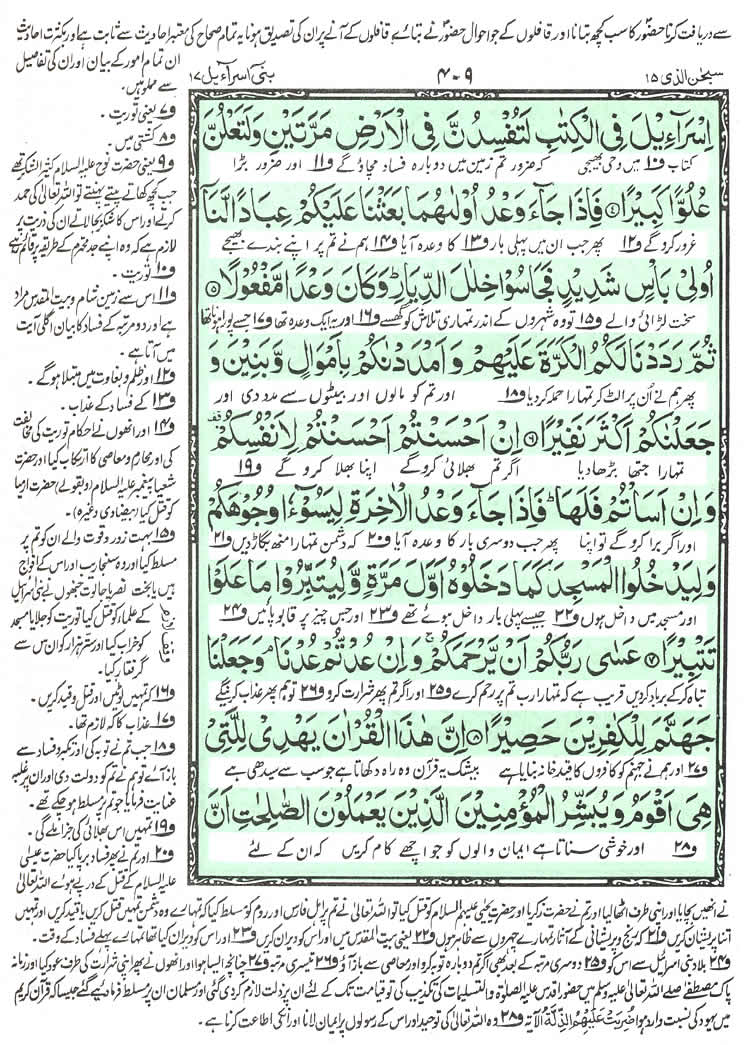 سے دریافت کرنا حضور کا سب کچھ بتانا اور قافلوں کے جو احوال حضور نے بتائے قافلوں کے آنے پر ان کی تصدیق ہونا یہ تمام صحاح کی معتبر احادیث سے ثابت ہے اور بکثرت احادیث
سبحٰن الذی ۱۵
۴-۹
بنی اسرآءیل ۱۷
اِسْرَآءِیْلَ فِی الْكِتٰبِ لَتُفْسِدُنَّ فِی الْاَرْضِ مَرَّتَیْنِ وَ لَتَعْلُنَّ
کتاب و۱۰ میں وحی بھیجی کہ ضرور تم زمین میں دوبارہ فساد مچاؤ گے و۱۱ اور ضرور بڑا
عُلُوًّا كَبِیْرًا ۴ فَاِذَا جَآءَ وَعْدُ اُوْلٰىهُمَا بَعَثْنَا عَلَیْكُمْ عِبَادًا لَّنَاۤ
غرور کرو گے و۱۲ پھر جب ان میں پہلی بار و۱۳ کا وعدہ آیا و۱۴ ہم نے تم پر اپنے بندے بھیجے
اُولِیْ بَاْسٍ شَدِیْدٍ فَجَاسُوْا خِلٰلَ الدِّیَارِ وَ كَانَ وَعْدًا مَّفْعُوْلًا ۵
سخت لڑائی والے و۱۵ تو وہ شہروں کے اندر تمہاری تلاش کو گھسے و۱۶ اور یہ ایک وعدہ تھا و۱۷ جسے پورا ہونا تھا
ثُمَّ رَدَدْنَا لَكُمُ الْكَرَّةَ عَلَیْهِمْ وَ اَمْدَدْنٰكُمْ بِاَمْوَالٍ وَّ بَنِیْنَ وَ
پھر ہم نے اُن پر الٹ کر تمہارا حملہ کر دیا و۱۸ اور تم کو مالوں اور بیٹوں سے مدد دی اور
جَعَلْنٰكُمْ اَكْثَرَ نَفِیْرًا ۶ اِنْ اَحْسَنْتُمْ اَحْسَنْتُمْ لِاَنْفُسِكُمْ
تمہارا جتھا بڑھا دیا اگر تم بھلائی کرو گے اپنا بھلا کرو گے و۱۹
وَ اِنْ اَسَاْتُمْ فَلَهَا فَاِذَا جَآءَ وَعْدُ الْاٰخِرَةِ لِیَسُوْٓءٗا وُجُوْهَكُمْ
اور اگر برا کرو گے تو اپنا پھر جب دوسری بار کا وعدہ آیا و۲۰ کہ دشمن تمہارا منھ بگاڑ دیں و۲۱
وَ لِیَدْخُلُوا الْمَسْجِدَ كَمَا دَخَلُوْهُ اَوَّلَ مَرَّةٍ وَّ لِیُتَبِّرُوْا مَا عَلَوْا
اور مسجد میں داخل ہوں و۲۲ جیسے پہلی بار داخل ہوئے تھے و۲۳ اور جس چیز پر قابو پائیں و۲۴
تَتْبِیْرًا ۷ عَسٰى رَبُّكُمْ اَنْ یَّرْحَمَكُمْ وَ اِنْ عُدْتُّمْ عُدْنَا وَ جَعَلْنَا
تباہ کر کے برباد کردیں قریب ہے کہ تمہارا رب تم پر رحم کرے و۲۵ اور اگر تم پھر شرارت کرو و۲۶ تو ہم پھر عذاب کریں گے
جَهَنَّمَ لِلْكٰفِرِیْنَ حَصِیْرًا ۸ اِنَّ هٰذَا الْقُرْاٰنَ یَهْدِیْ لِلَّتِیْ
و۲۷ اور ہم نے جہنم کو کافروں کا قید خانہ بنایا ہے بیشک یہ قرآن وہ راہ دکھاتا ہے جو سب سے سیدھی ہے
هِیَ اَقْوَمُ وَ یُبَشِّرُ الْمُؤْمِنِیْنَ الَّذِیْنَ یَعْمَلُوْنَ الصّٰلِحٰتِ اَنَّ
و۲۸ اور خوشی سناتا ہے ایمان والوں کو جو اچھے کام کریں کہ ان کے لئے
ان تمام امور کے بیان اور ان کی تفاصیل
سے مملو ہیں۔
و۷ یعنی توریت۔
و۸ کشتی میں۔
و۹ یعنی حضرت نوح علیہ السلام کثیر الشکر تھے
جب کچھ کھاتے پیتے پہنتے تو اللہ تعالیٰ کی حمد
کرتے اور اس کا شکر بجالاتے ان کی ذریت پر
لازم ہے کہ وہ اپنے جد محترم کے طریقہ پر قائم رہے
و۱۰ توریت۔
و۱۱ اس سے زمین شام و بیت المقدس مراد
ہے اور دو مرتبہ کے فساد کا بیان اگلی آیت
میں آتا ہے۔
و۱۲ اور ظلم و بغاوت میں مبتلا ہو گے۔
و۱۳ کے فساد کے عذاب۔
و۱۴ اور انھوں نے احکام توریت کی مخالفت
کی اور محارم و معاصی کا ارتکاب کیا اور حضرت
شعیا پیغمبر علیہ السلام (و بقولے) حضرت ارمیا
کو قتل کیا (بیضاوی وغیرہ)۔
و۱۵ بہت زور و قوت والے ان کو تم پر
مسلط کیا اور وہ سنجاریب اور اس کے افواج
ہیں یا بخت نصر یا جالوت جنھوں نے بنی اسرائیل
کے علماء کو قتل کیا توریت کو جلایا مسجد
کو خراب کیا اور ستر ہزار کو ان میں سے
گرفتار کیا۔
و۱۶ کہ تمہیں لوٹیں اور قتل و قید کریں۔
و۱۷ عذاب کا کہ لازم تھا۔
و۱۸ جب تم نے توبہ کی اور تکبر و فساد سے
باز آئے تو ہم نے تم کو دولت دی اور ان پر غلبہ
عنایت فرمایا جو تم پر مسلط ہو چکے تھے۔
و۱۹ تمہیں اس بھلائی کی جزا ملے گی۔
و۲۰ اور تم نے پھر فساد برپا کیا حضرت عیسیٰ
علیہ السلام کے قتل کے درپے ہوئے اللہ تعالیٰ
نے انھیں بچایا اور اپنی طرف اٹھا لیا اور تم نے حضرت زکریا اور حضرت یحییٰ علیہم السلام کو قتل کیا تو اللہ تعالیٰ نے تم پر اہل فارس اور روم کو مسلط کیا کہ تمہارے وہ دشمن تمہیں قتل کریں یا قید کریں اور تمہیں
اتنا پریشان کریں و۲۱ کہ رنج و پریشانی کے آثار تمہارے چہروں سے ظاہر ہوں و۲۲ یعنی بیت المقدس میں اور اس کو ویران کریں و۲۳ اور اس کو ویران کیا تھا تمہارے پہلے فساد کے وقت۔
و۲۴ بلاد بنی اسرائیل سے اس کو و۲۵ دوسری مرتبہ کے بعد بھی اگر تم دوبارہ توبہ کرو اور معاصی سے باز آؤ و۲۶ تیسری مرتبہ و۲۷ چنانچہ ایسا ہوا اور انھوں نے پھر اپنی شرارت کی طرف عود کیا اور زمانہ
پاک مصطفےٰ صلی اللہ تعالیٰ علیہ وسلم میں حضور اقدس علیہ الصلوٰۃ والتسلیمات کی تکذیب کی تو قیامت تک کے لئے ان پر ذلت لازم کر دی گئی اور مسلمان ان پر مسلط فرما دیے گئے جیسا کہ قرآن کریم
میں یہود کی نسبت وارد ہوا ضُرِبَتْ عَلَیْهِمُ الذِّلَّةُ الآیۃ و۲۸ وہ اللہ تعالیٰ کی توحید اور اس کے رسولوں پر ایمان لانا اور انکی اطاعت کرنا ہے۔